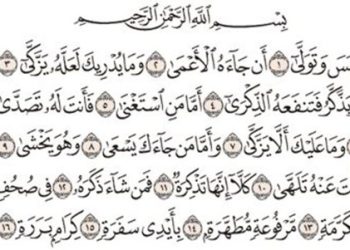 بِسْمِ اللَّهِ الرَّحْمَٰنِ الرَّحِيمِ
سَ وَتَوَلَّىٰ ١ أَن جَاءَهُ الْأَعْمَىٰ ٢ وَمَا يُدْرِيكَ لَعَلَّهُ يَزَّكَّىٰ ٣
يَذَّكَّرُ فَتَنفَعَهُ الذِّكْرَىٰ ٤ أَمَّا مَنِ اسْتَغْنَىٰ ٥ فَأَنتَ لَهُ تَصَدَّىٰ
وَمَا عَلَيْكَ أَلَّا يَزَّكَّىٰ ٧ وَأَمَّا مَن جَاءَكَ يَسْعَىٰ ٨ وَهُوَ يَخْشَىٰ ٩
تَ عَنْهُ تَلَهَّىٰ ١٠ كَلَّا إِنَّهَا تَذْكِرَةٌ ١١ فَمَن شَاءَ ذَكَرَهُ ١٢ فِي صُحُفٍ
كَرَّمَةٍ ١٣ مَّرْفُوعَةٍ مُّطَهَّرَةٍ ١٤ بِأَيْدِي سَفَرَةٍ ١٥ كِرَامٍ بَرَرَةٍ ١٦